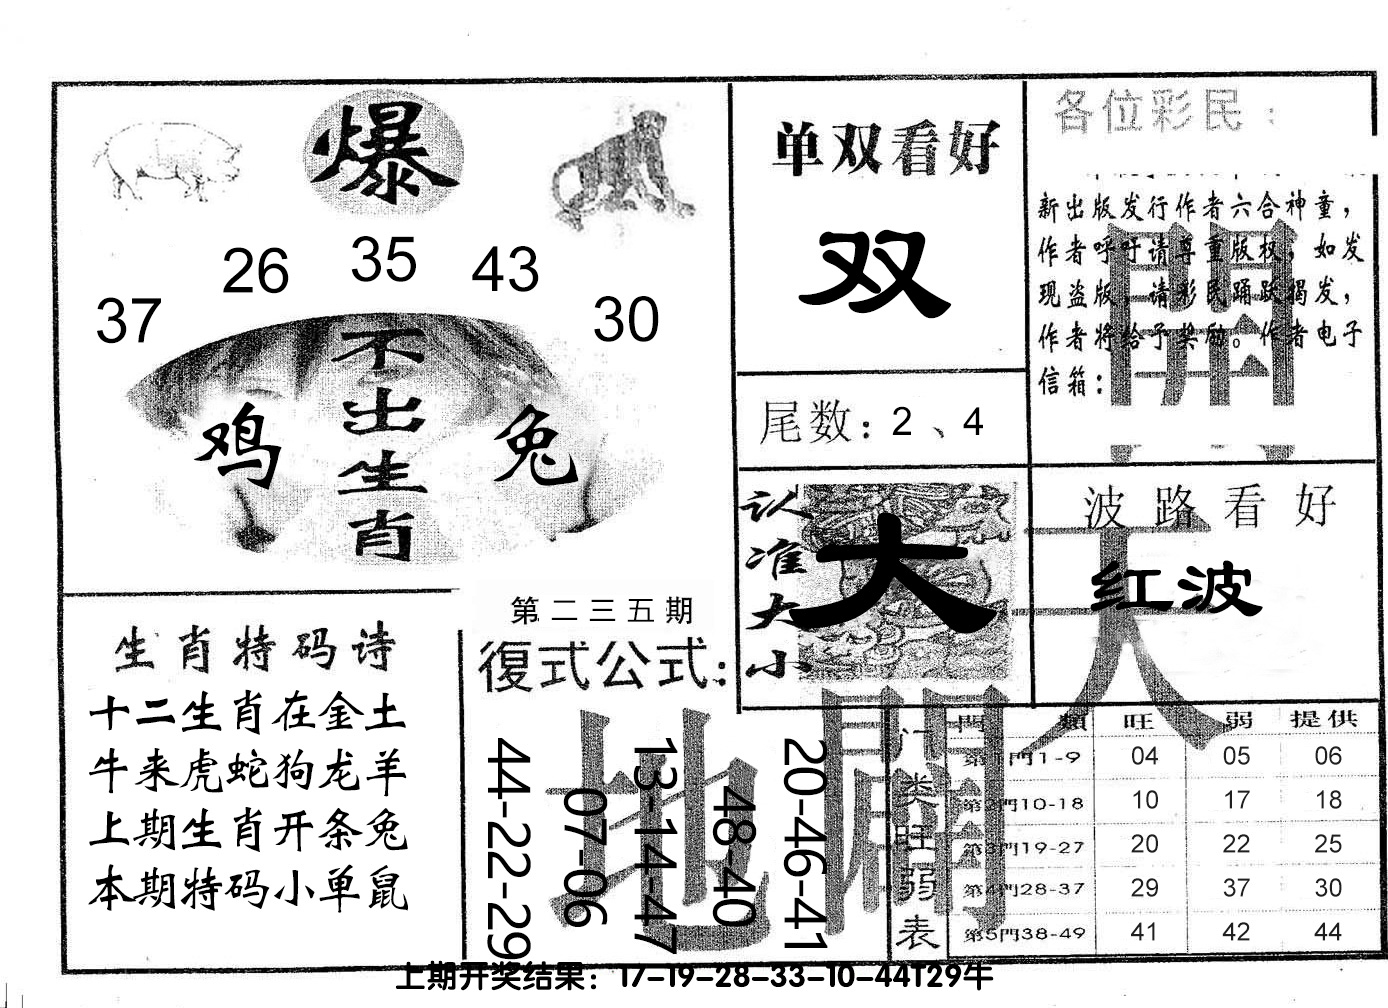 爆
37
26
35
43
30
不出生肖
鸡
兔
单双看好
双
尾数：2、4
各位彩民：
新出版发行作者六合神童，
作者呼吁请尊重版权，如发
现盗版，请彩民踊跃揭发，
作者将给予奖励。作者电子
信箱：
開
认准大小
大
波路看好
红波
天
生肖特码诗
十二生肖在金土
牛来虎蛇狗龙羊
上期生肖开条兔
本期特码小单鼠
第二三五期
復式公式：
44-22-29
07-06
13-14-47
48-40
20-46-41
地
門类旺弱表
門類 旺 弱 提供
第1門1-9 04 05 06
第2門10-18 10 17 18
第3門19-27 20 22 25
第4門28-37 29 37 30
第5門38-49 41 42 44
上期开奖结果：17-19-28-33-10-44T29牛